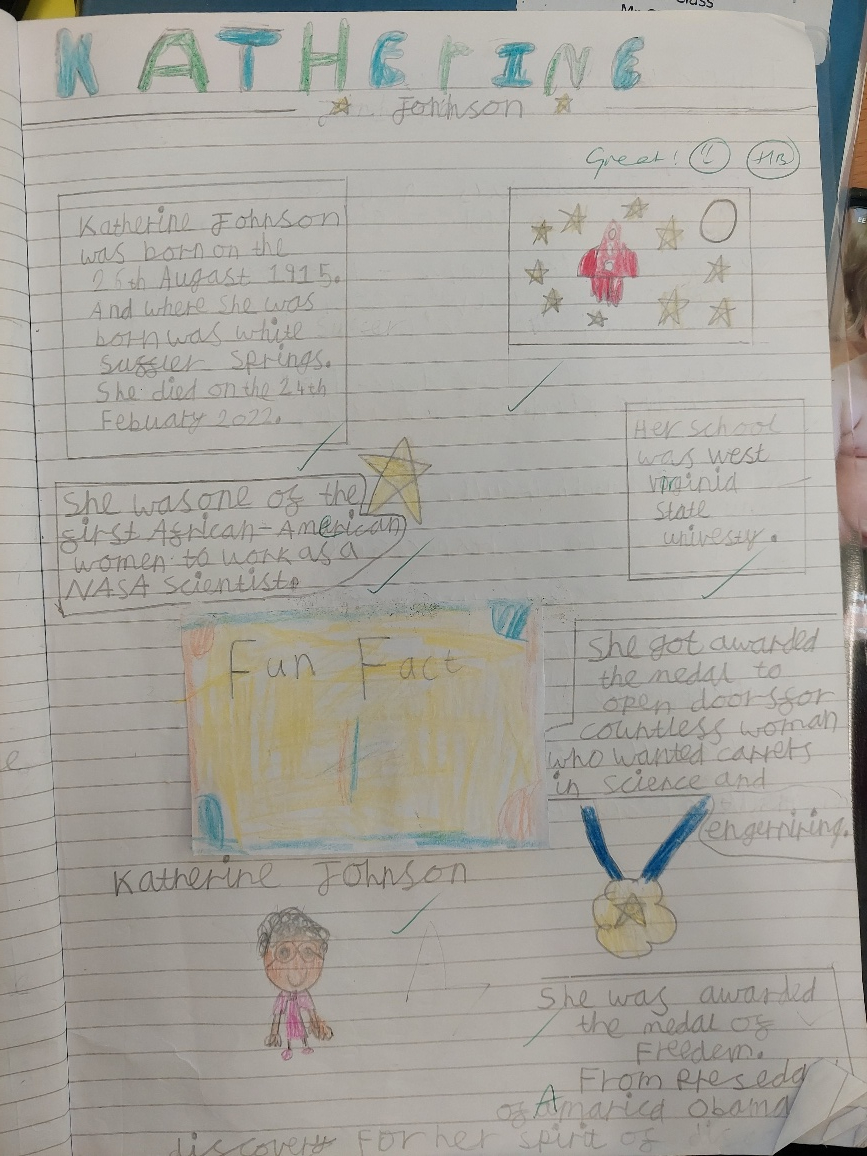 class
KATHERINE
Johnson
Great! HB
Katherine Johnson
was born on the
26th Augast 1915.
And where she was
born was white
Springs.
She died on the 24th
Febuary 2022.
Her school
was west
Virginia
State
univesty.
She was one of the
first African-American
women to work as a
NASA Scientist.
Fun Fact
She got awarded
the medal to
open doors for
countless woman
who wanted carrers
in science and
engerniring.
Katherine Johnson
She was awarded
the medal of
Freedem.
From
of Amarica Obama
discovery For her spirit of